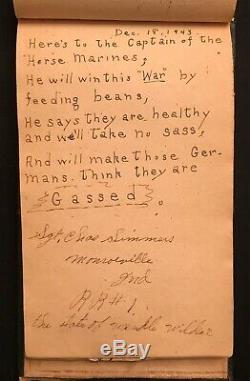 Dec. 18, 1943
Here's to the Captain of the
Horse Marines,
He will win this "War" by
feeding beans,
He says they are healthy
and we'll take no sass,
And will make those Ger-
mans. Think they are
Gassed.
Sgt. Chas Simmers
Monroeville
Ind
RR#1.
the state of